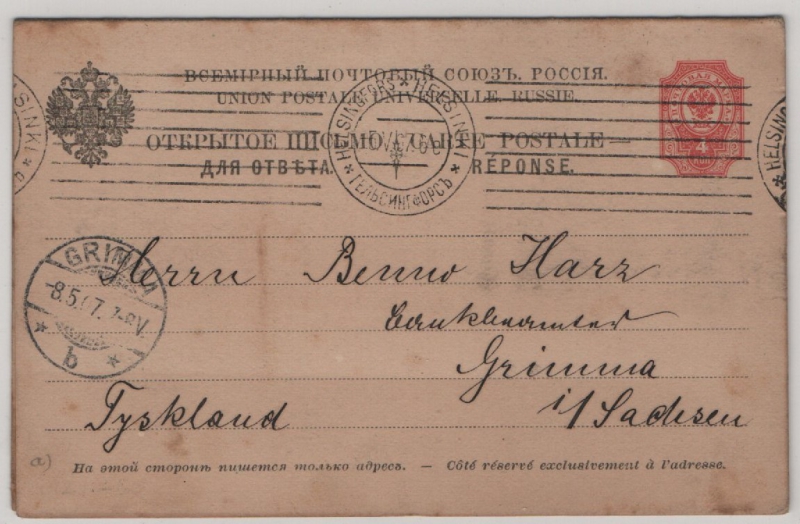 ВСЕМІРНЫЙ ПОЧТОВЫЙ СОЮЗЪ. РОССІЯ.
UNION POSTALE UNIVERSELLE. RUSSIE.
ОТКРЫТОЕ ПИСЬМО / CARTE POSTALE
ДЛЯ ОТВѢТА. RÉPONSE.
ПОЧТОВАЯ МАРКА
4
HELSINGFORS * HELSINKI
* ГЕЛЬСИНГФОРСЪ *
SINKI
HELSINGF
GRIMMA
-8.5.07. 7-8V.
* b *
Herrn Benno Harz
Bankbeamter
Grimma
Tyskland i/Sachsen
a)
На этой сторонѣ пишется только адресъ. — Côté réservé exclusivement à l'adresse.